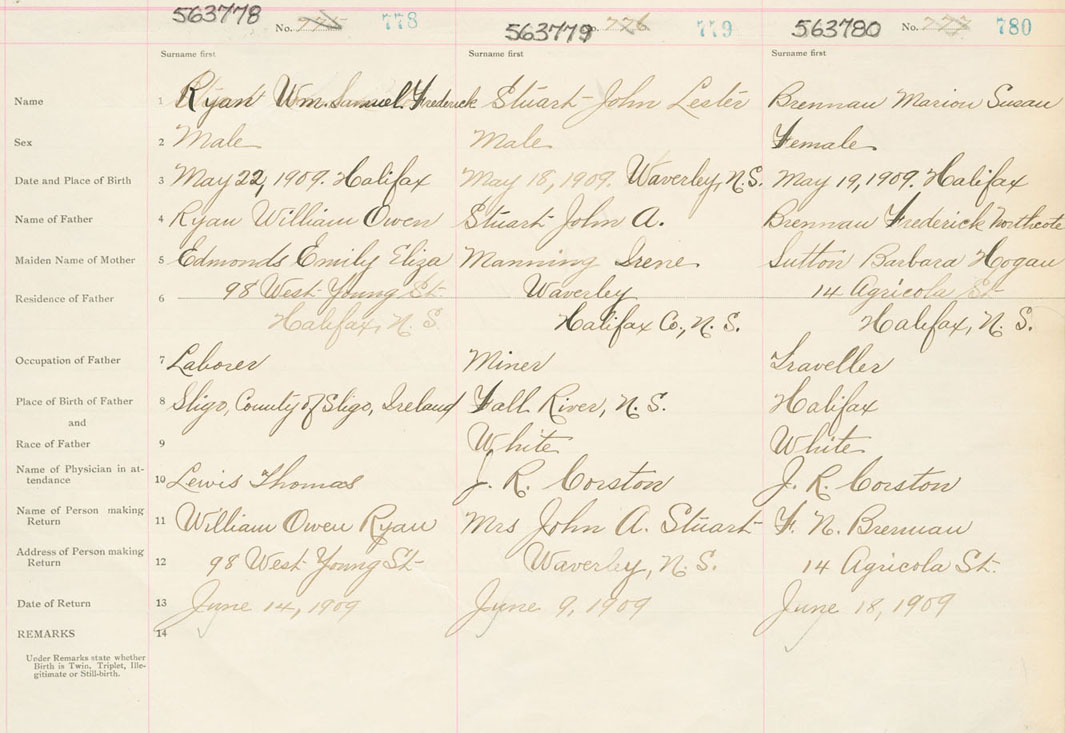 563778 No. 775 778 563779 No. 776 779 563780 No. 777 780
Surname first Surname first Surname first
Name 1 Ryan Wm. Samuel Frederick Stuart John Lester Brennan Marion Susan
Sex 2 Male Male Female
Date and Place of Birth 3 May 22, 1909. Halifax May 18, 1909. Waverley, N.S. May 19, 1909. Halifax
Name of Father 4 Ryan William Owen Stuart John A. Brennan Frederick Northcote
Maiden Name of Mother 5 Edmonds Emily Eliza Manning Irene Sutton Barbara Hogan
Residence of Father 6 98 West Young St. Waverley 14 Agricola St
Halifax, N. S. Halifax Co., N. S. Halifax, N. S.
Occupation of Father 7 Laborer Miner Traveller
Place of Birth of Father 8 Sligo, County of Sligo, Ireland Fall River, N. S. Halifax
and
Race of Father 9 White White
Name of Physician in at-
tendance 10 Lewis Thomas J. R. Corston J. R. Corston
Name of Person making
Return 11 William Owen Ryan Mrs John A. Stuart F. N. Brennan
Address of Person making
Return 12 98 West Young St Waverley, N. S. 14 Agricola St.
Date of Return 13 June 14, 1909 June 9, 1909 June 18, 1909
REMARKS 14
Under Remarks state whether
Birth is Twin, Triplet, Ille-
gitimate or Still-birth.